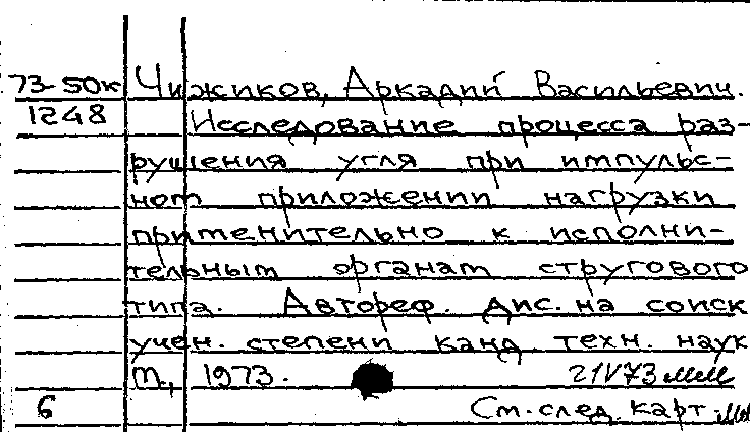 73-50к Чижиков, Аркадий Васильевич.
1248 Исследование процесса раз-
рушения угля при импульс-
ном приложении нагрузки
применительно к исполни-
тельным органам стругового
типа. Автореф. дис. на соиск
учен. степени канд. техн. наук
М., 1973. 21V73
6 См. след. карт